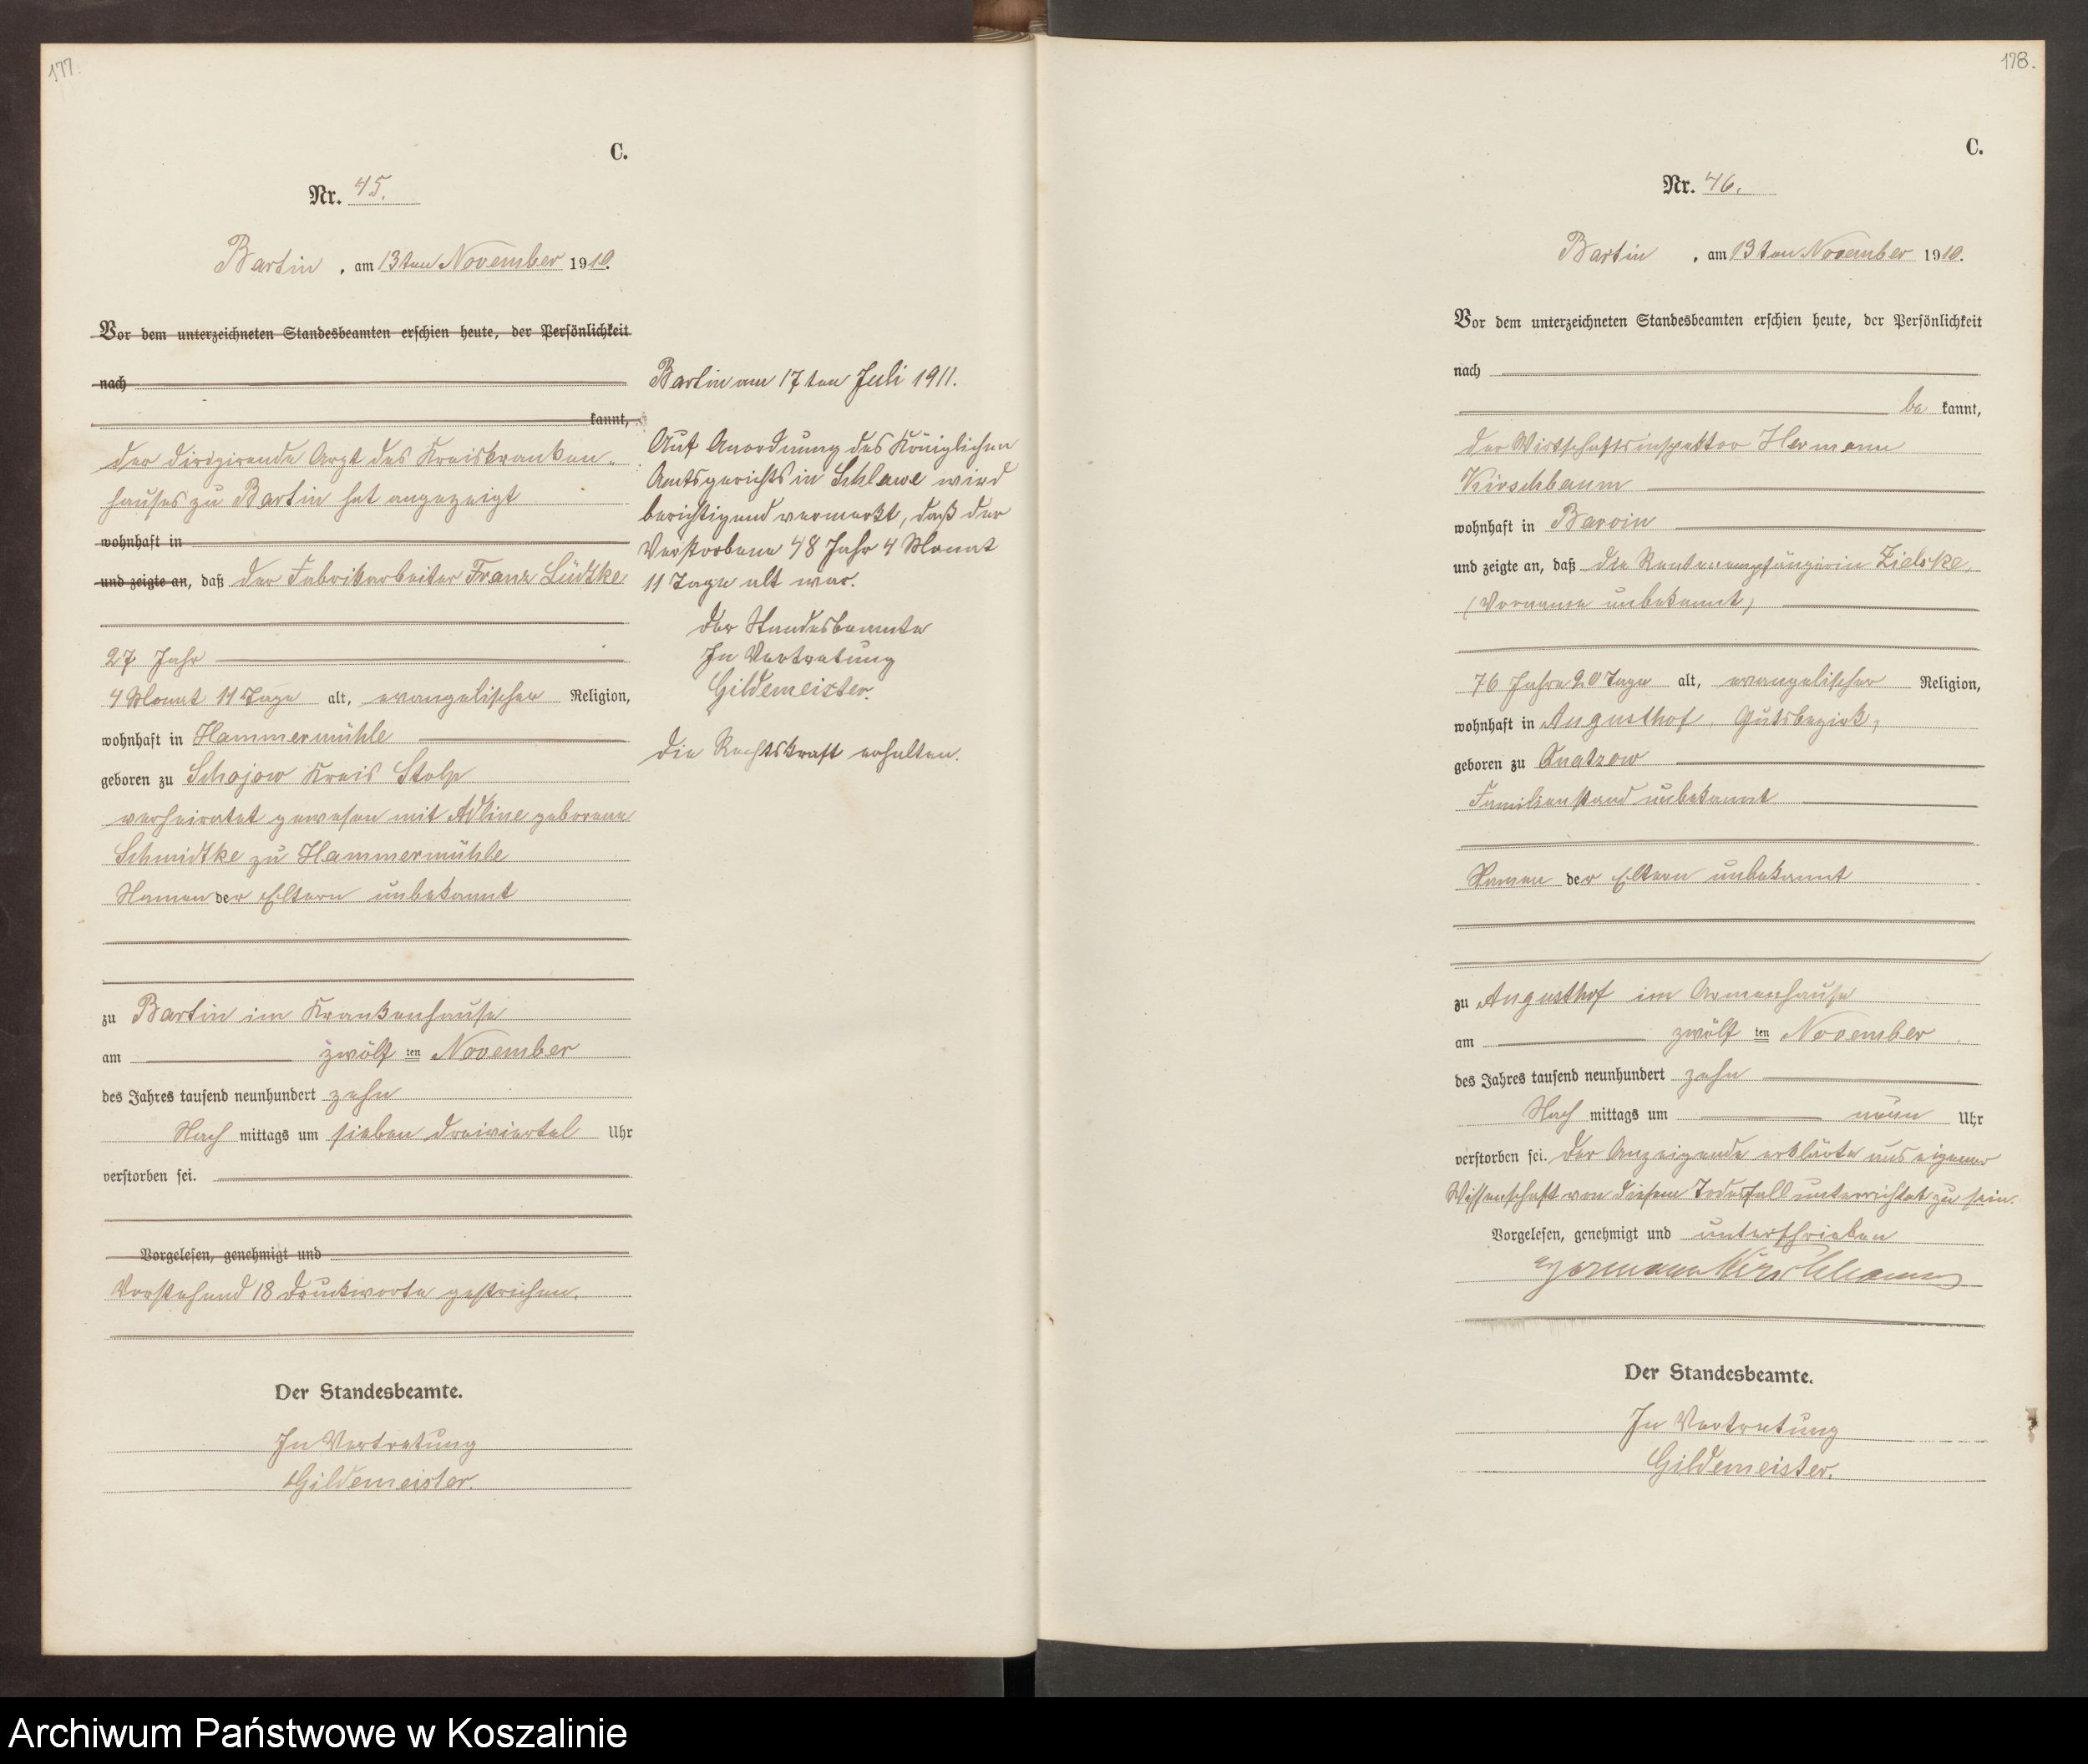 177.
C.
Nr. 45.
Bartin, am 13ten November 1910.
Vor dem unterzeichneten Standesbeamten erschien heute, der Persönlichkeit
nach
kannt,
der dirigirende Arzt des Kreiskranken-
hauses zu Bartin hat angezeigt
wohnhaft in
und zeigte an, daß der Fabrikarbeiter Franz Lüdtke
27 Jahr
4 Monat 11 Tage alt, evangelischer Religion,
wohnhaft in Hammermühle
geboren zu Schojow Kreis Stolp
verheiratet gewesen mit Adline geborene
Schmidtke zu Hammermühle
Namen der Eltern unbekannt
zu Bartin im Krankenhause
am zwölf ten November
des Jahres tausend neunhundert zehn
Nach mittags um sieben dreiviertel Uhr
verstorben sei.
Vorgelesen, genehmigt und
Vorstehend 18 Druckworte gestrichen.
Der Standesbeamte.
In Vertretung
Gildemeister.
Bartin am 17ten Juli 1911.
Auf Anordnung des Königlichen
Amtsgerichts in Schlawe wird
berichtigend vermerkt, daß der
Verstorbene 48 Jahr 4 Monat
11 Tage alt war.
Der Standesbeamte
In Vertretung
Gildemeister.
Die Rechtskraft erhalten.
178.
C.
Nr. 46.
Bartin, am 13ten November 1910.
Vor dem unterzeichneten Standesbeamten erschien heute, der Persönlichkeit
nach
be kannt,
der Wirtschaftsinspektor Hermann
Kirschbaum
wohnhaft in Barvin
und zeigte an, daß die Rentenempfängerin Zielske,
(Vorname unbekannt)
76 Jahre 20 Tage alt, evangelischer Religion,
wohnhaft in Augusthof, Gutsbezirk,
geboren zu Quatzow
Familienstand unbekannt
Namen der Eltern unbekannt
zu Augusthof im Armenhause
am zwölf ten November
des Jahres tausend neunhundert zehn
Nach mittags um neun Uhr
verstorben sei. Der Anzeigende erklärte aus eigener
Wissenschaft von diesem Todesfall unterrichtet zu sein.
Vorgelesen, genehmigt und unterschrieben
Hermann Kirschbaum
Der Standesbeamte.
In Vertretung
Gildemeister.
Archiwum Państwowe w Koszalinie